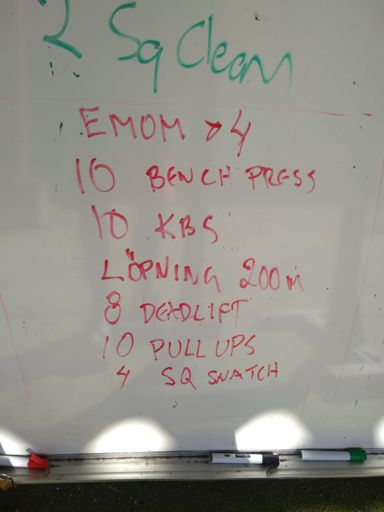 2 Sq Clean
EMOM × 4
10 BENCH PRESS
10 KBS
LÖPNING 200m
8 DEADLIFT
10 PULL UPS
4 SQ SNATCH